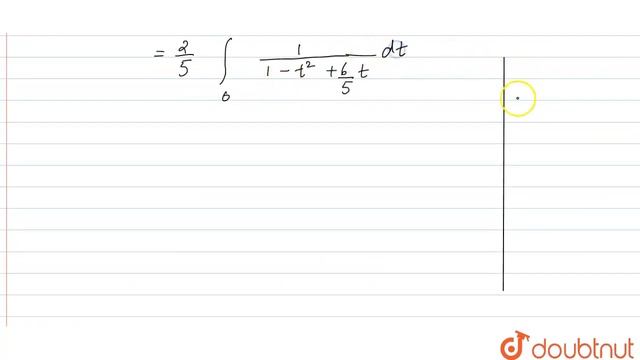 = 2/5 ∫₀ 1/(1 - t² + 6/5 t) dt
doubtnut